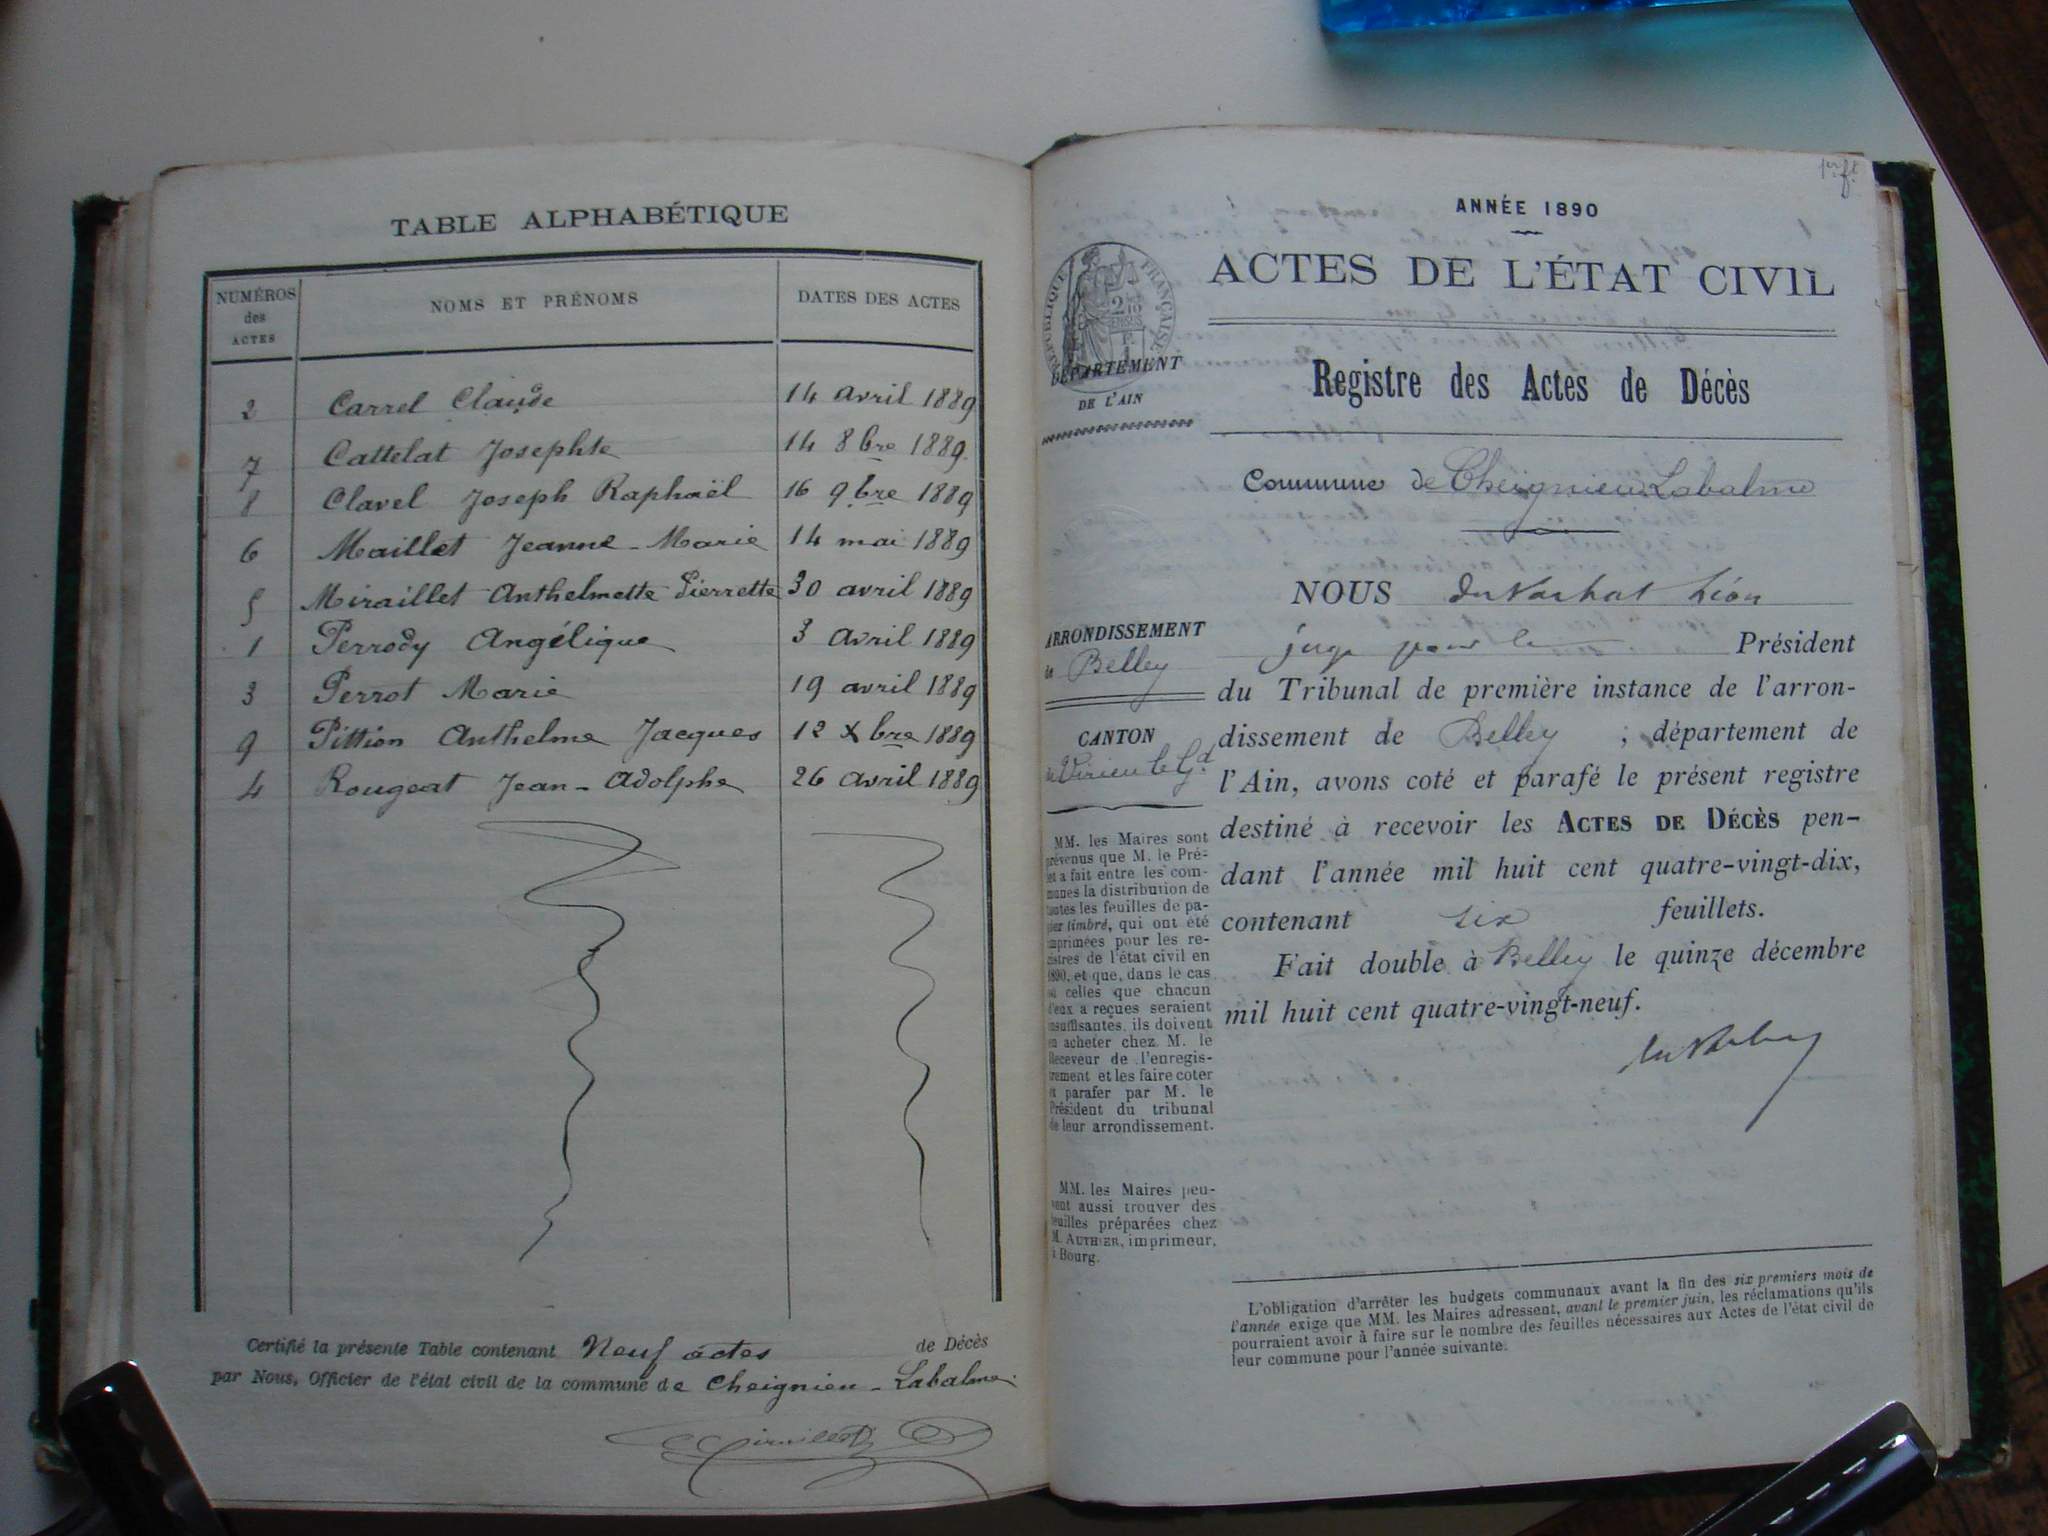 TABLE ALPHABÉTIQUE
NUMÉROS des ACTES
NOMS ET PRÉNOMS
DATES DES ACTES
2 Carrel Claude 14 avril 1889
7 Cattelat Josephte 14 8bre 1889.
8 Clavel Joseph Raphaël 16 9bre 1889
6 Maillet Jeanne-Marie 14 mai 1889
5 Miraillet Anthelmette Pierrette 30 avril 1889
1 Perrody Angélique 3 avril 1889
3 Perrot Marie 19 avril 1889
9 Pittion Anthelme Jacques 12 Xbre 1889
4 Rougeat Jean-Adolphe 26 avril 1889
Certifié la présente Table contenant Neuf actes de Décès
par Nous, Officier de l'état civil de la commune de Cheignieu-Labalme.
1er ft.
ANNÉE 1890
ACTES DE L'ÉTAT CIVIL
RÉPUBLIQUE FRANÇAISE
DÉPARTEMENT
DE L'AIN
Registre des Actes de Décès
Commune de Cheignieu Labalme
ARRONDISSEMENT
de Belley
CANTON
de Virieu le Gd
MM. les Maires sont
prévenus que M. le Pré-
fet a fait entre les com-
munes la distribution de
toutes les feuilles de pa-
pier timbré, qui ont été
imprimées pour les re-
gistres de l'état civil en
1890, et que, dans le cas
où celles que chacun
d'eux a reçues seraient
insuffisantes, ils doivent
en acheter chez M. le
Receveur de l'enregis-
trement et les faire coter
et parafer par M. le
Président du tribunal
de leur arrondissement.
MM. les Maires peu-
vent aussi trouver des
feuilles préparées chez
M. AUTHIER, imprimeur,
à Bourg.
NOUS Léon
juge pour le Président
du Tribunal de première instance de l'arron-
dissement de Belley ; département de
l'Ain, avons coté et parafé le présent registre
destiné à recevoir les ACTES DE DÉCÈS pen-
dant l'année mil huit cent quatre-vingt-dix,
contenant six feuillets.
Fait double à Belley le quinze décembre
mil huit cent quatre-vingt-neuf.
L'obligation d'arrêter les budgets communaux avant la fin des six premiers mois de
l'année exige que MM. les Maires adressent, avant le premier juin, les réclamations qu'ils
pourraient avoir à faire sur le nombre des feuilles nécessaires aux Actes de l'état civil de
leur commune pour l'année suivante.